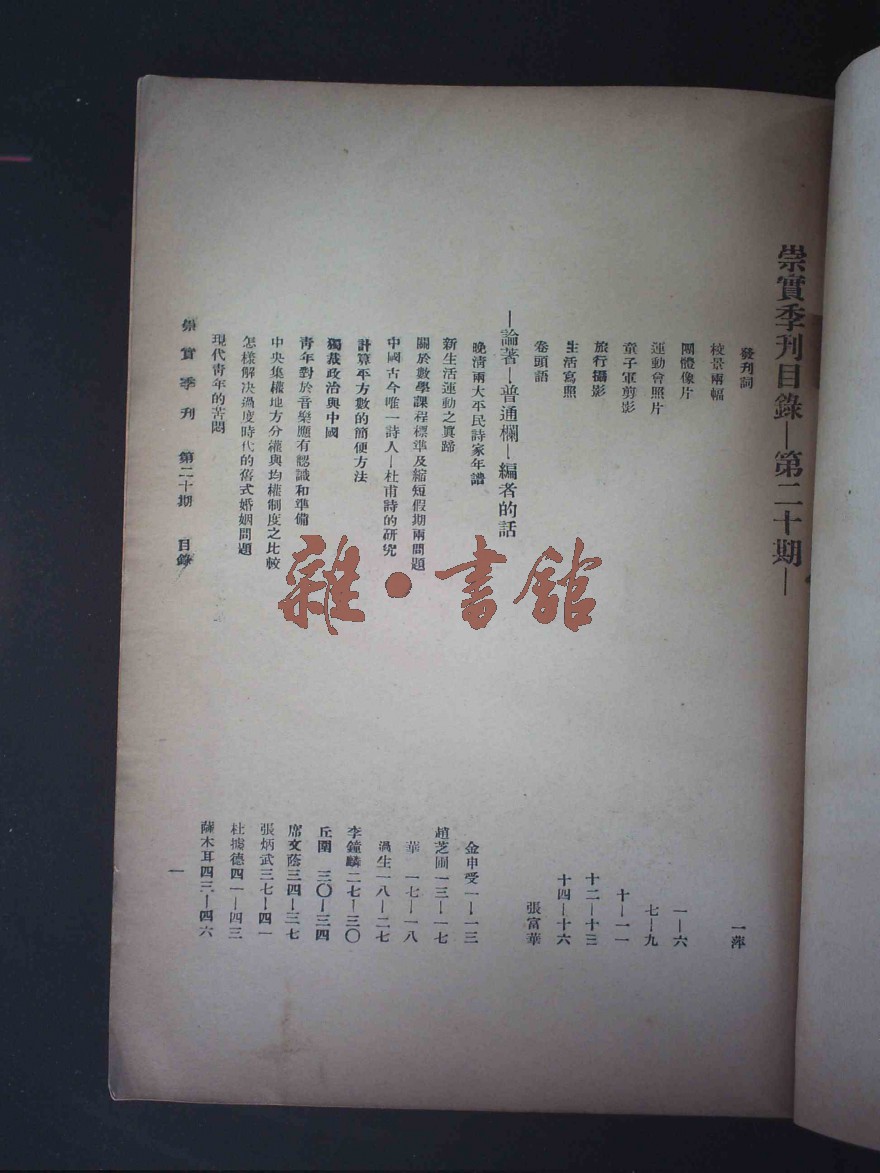 崇實季刊目錄—第二十期—
發刊詞 一萍
校景兩幅
團體像片 一—六
運動會照片 七—九
童子軍剪影 十—一一
旅行攝影 十二—十三
生活寫照 十四—十六
卷頭語 張富華
—論著—普通欄—編者的話
晚清兩大平民詩家年譜 金申受一—一三
新生活運動之眞歸 趙芝圃一三—一七
關於數學課程標準及縮短假期兩問題 華 一七—一八
中國古今唯一詩人—杜甫詩的研究 渦生一八—二七
計算平方數的簡便方法 李鐘麟二七—三〇
獨裁政治與中國 丘圍 三〇—三四
靑年對於音樂應有認識和準備 席文蔭三四—三七
中央集權地方分權與均權制度之比較 張炳武三七—四一
怎樣解决過度時代的舊式婚姻問題 杜據德四一—四三
現代靑年的苦悶 薩木耳四三—四六
崇實季刊 第二十期 目錄 一
雜·書館